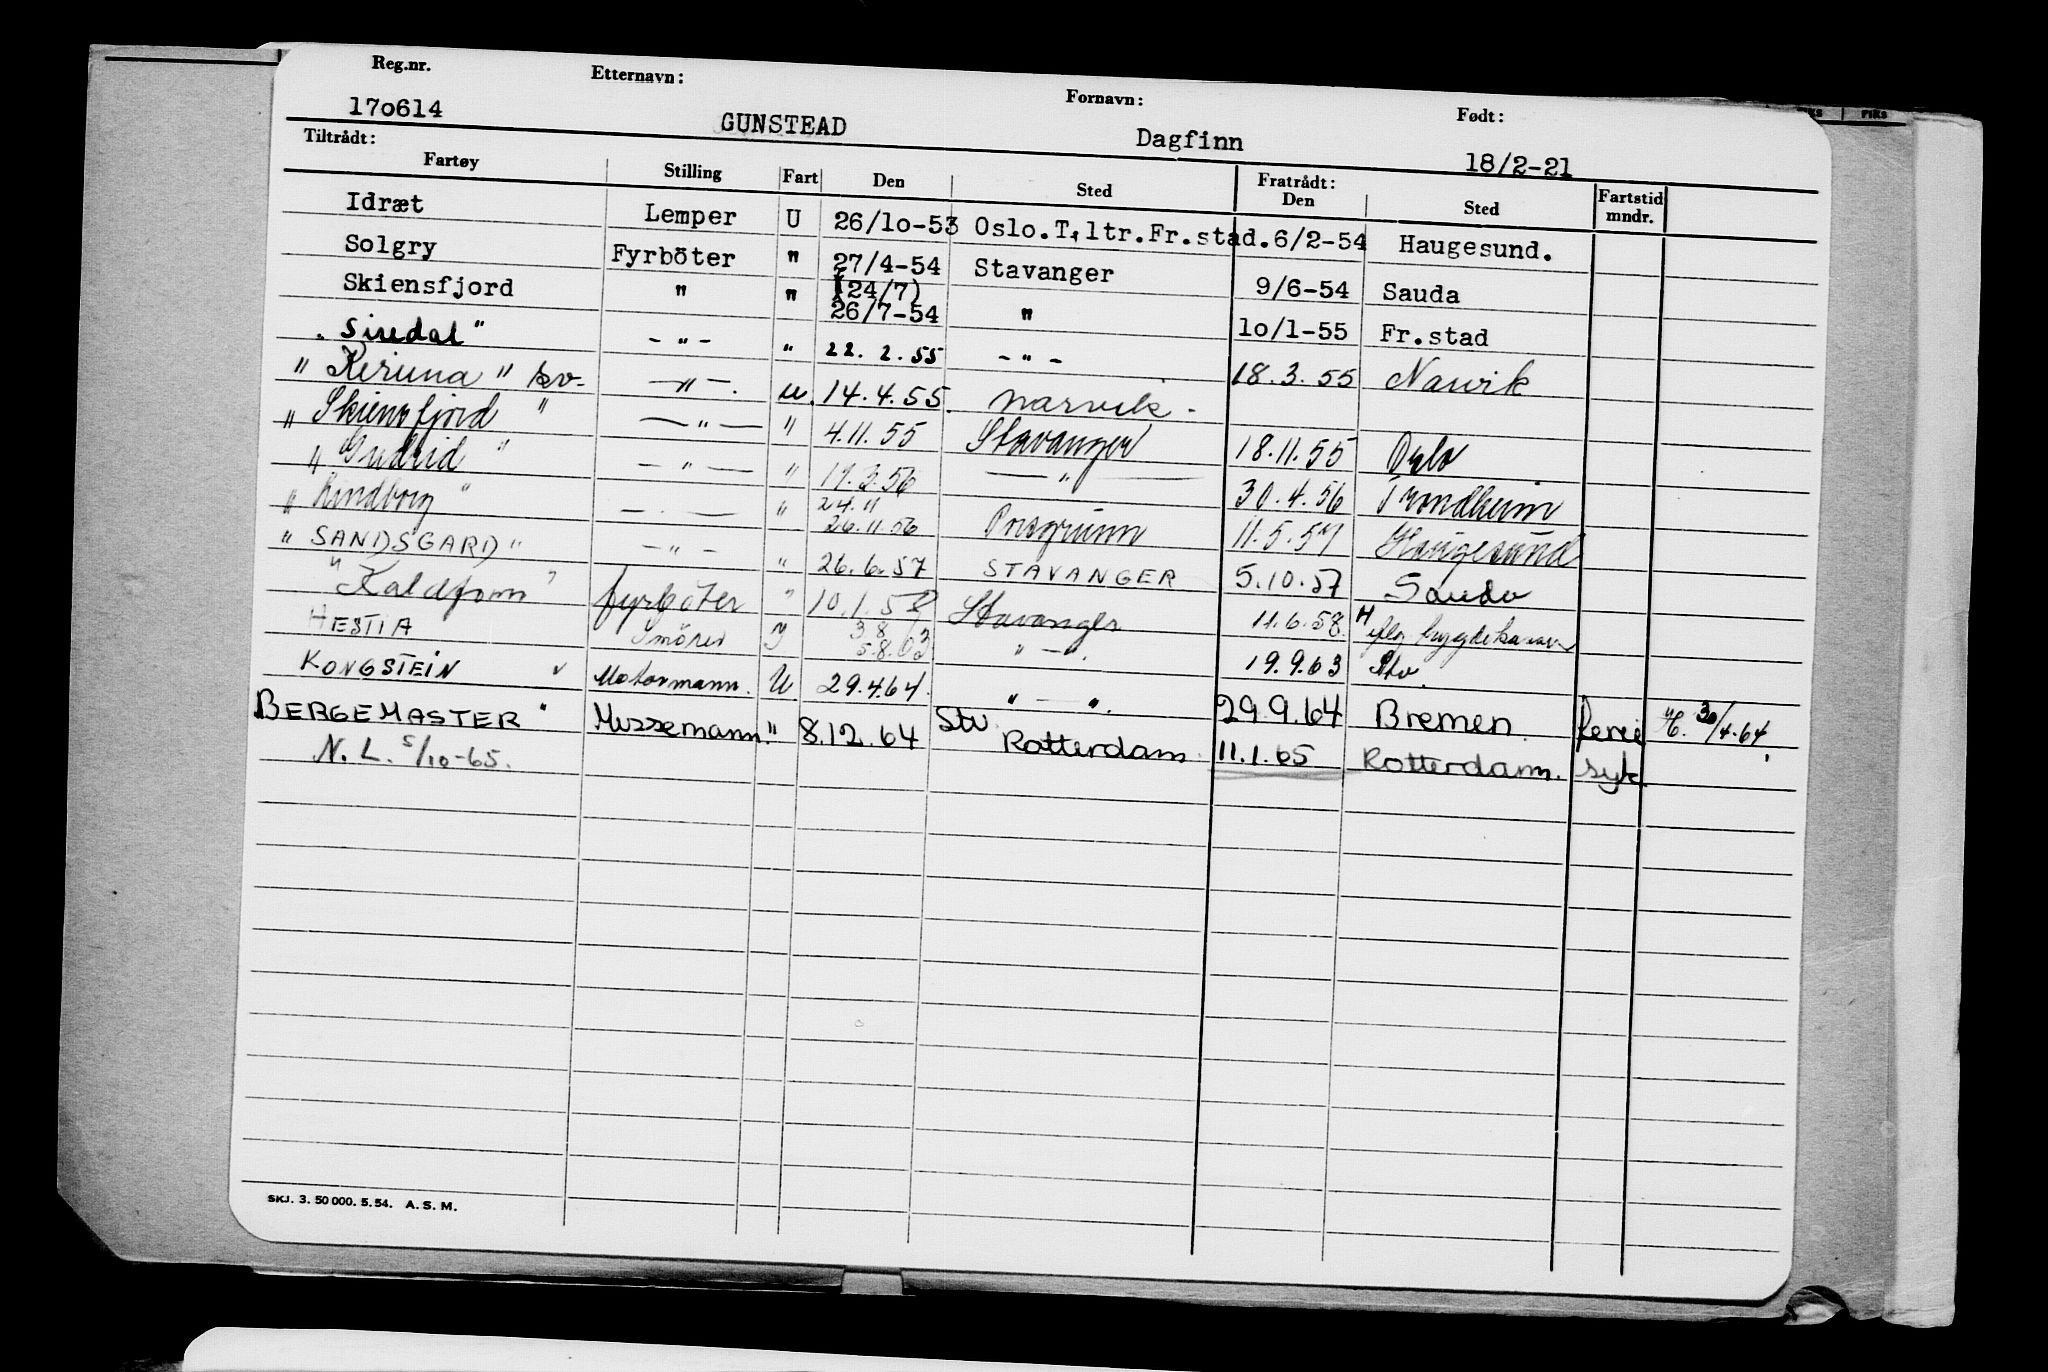 Reg.nr. Etternavn: Fornavn: Født:
170614 GUNSTEAD Dagfinn 18/2-21
Tiltrådt: Fratrådt:
Fartøy Stilling Fart Den Sted Den Sted Fartstid mndr.
Idræt Lemper U 26/10-53 Oslo.T.ltr.Fr.stad. 6/2-54 Haugesund.
Solgry Fyrböter " 27/4-54 Stavanger 9/6-54 Sauda
Skiensfjord " " (24/7) 26/7-54 " 10/1-55 Fr.stad
"Siredal" - " - " 22.2.55 - " - 18.3.55 Narvik
"Kiruna" - " - . u. 14.4.55. Narvik -
"Skiensfjord" - " - " 4.11.55 Stavanger 18.11.55 Oslo
"Gudrid" - " - " 17.3.56 - " - 30.4.56 Trondheim
- . - " 24.11 26.11.56 Porsgrunn 11.5.57 Haugesund
"SANDSGARD" - " - " 26.6.57 STAVANGER 5.10.57 Sauda
fyrböter " 10.1.58 Stavanger 11.6.58.
HESTIA Smörer 3.8 5.8.63 " - ". 19.9.63 Stv.
KONGSTEIN Motormann. U 29.4.64. " - ". 29.9.64 Bremen. ferie 30/4-64
BERGEMASTER " Messemann. " 8.12.64 Stv. Rotterdam. 11.1.65 Rotterdam. syk
N.L. 5/10-65.
SKJ. 3. 50 000. 5. 54. A. S. M.